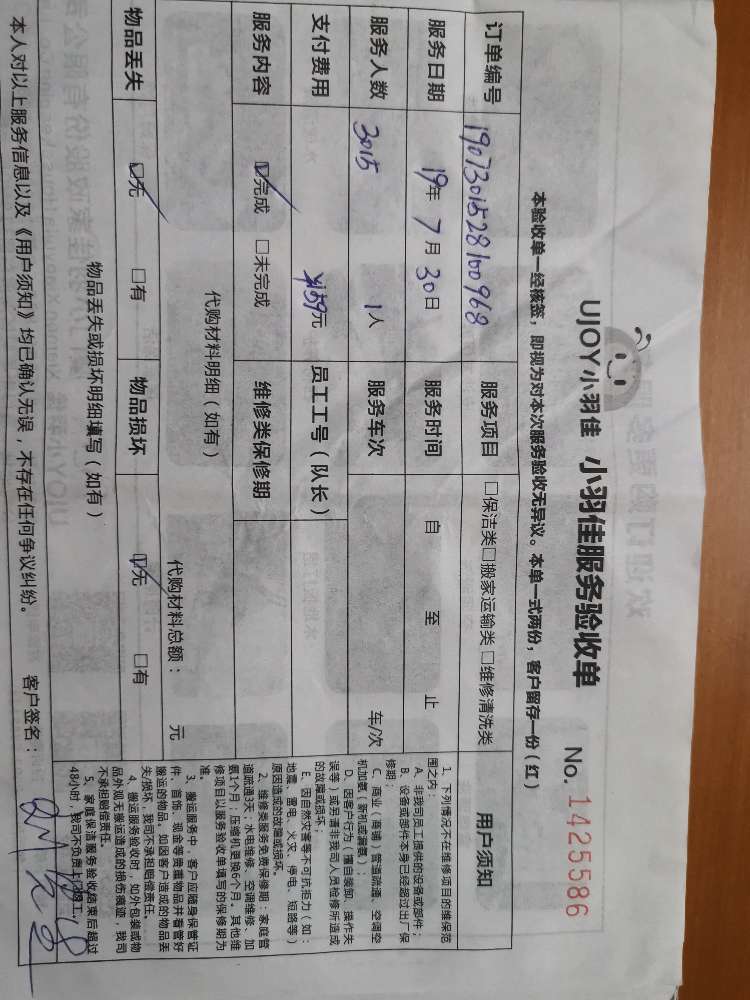 UJOY小羽佳 小羽佳服务验收单
No. 1425586
本验收单一经核签，即视为对本次服务验收无异议。本单一式两份，客户留存一份（红）
订单编号 1907301528100968 服务项目 □保洁类□搬家运输类□维修清洗类
服务日期 19年7月30日 服务时间 自 至 止
服务人数 3015 1人 服务车次 车/次
支付费用 ¥159元 员工工号（队长）
服务内容 ☑完成 □未完成 维修类保修期
代购材料明细（如有） 代购材料总额： 元
物品丢失 ☑无 □有 物品损坏 ☑无 □有
物品丢失或损坏明细填写（如有）
本人对以上服务信息以及《用户须知》均已确认无误，不存在任何争议纠纷。 客户签名：
用户须知
1、下列情况不在维修项目的维保范
围之内：
A、非我司员工提供的设备或部件；
B、设备或部件本身已经超过出厂保
修期；
C、商业（商铺）管道疏通、空调空
机加氨（新机或漏氨）；
D、因客户行为（擅自装卸、操作失
误等）或另请非我司人员检修所造成
的故障或损坏；
E、因自然灾害等不可抗拒力（如：
地震、雷电、火灾、停电、短路等）
原因造成的故障或损坏。
2、维修类服务免费保修期：家庭管
道疏通3天；水电维修、空调维修、加
氨1个月；压缩机更换6个月。其他维
修项目以服务验收单填写的保修期为
准。
3、搬运服务中，客户应随身保管证
件、首饰、现金等贵重物品并看管好
搬运的物品。如因客户造成的物品丢
失/损坏，我司不承担赔偿责任。
4、搬运服务验收时，如外包装或物
品外观无搬运造成的损伤痕迹，我司
不承担赔偿责任。
5、家庭保洁服务验收结束后超过
48小时，我司不负责上门返工。